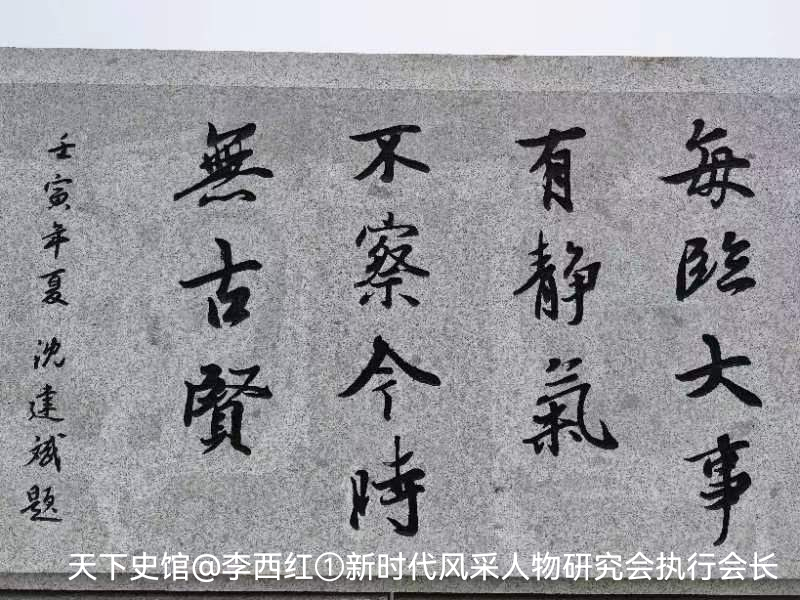 每臨大事
有静氣
不察今時
無古賢
壬寅年夏 沈建斌題
天下史馆@李西红①新时代风采人物研究会执行会长